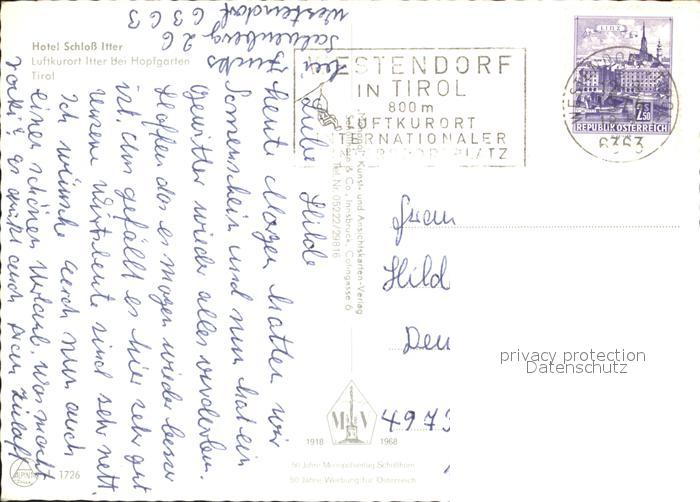 Hotel Schloß Itter
Luftkurort Itter Bei Hopfgarten
Tirol
bei Fuchs
Salvenberg 26
Westendorf 6363
Liebe Hilde
Heute Morgen hatten wir
Sonnenschein und nun hat ein
Gewitter wieder alles verdorben.
Hoffen das es morgen wieder besser
ist, uns gefällt es hier sehr gut
unsere Wirtsleute sind sehr nett.
Ich wünsche euch nun auch
einen schönen Urlaub. Was macht
1726
WESTENDORF
IN TIROL
800 m
LUFTKURORT
INTERNATIONALER
LINZ
S 2.50
REPUBLIK ÖSTERREICH
6363
Kunst- und Ansichtskarten-Verlag
& Co., Innsbruck, Colingasse 6
Tel. Nr. 05222/29816
Frau
Hild
Deu
497
M V
1918 1968
50 Jahre Monopolverlag Schöllhorn
50 Jahre Werbung für Österreich
privacy protection
Datenschutz